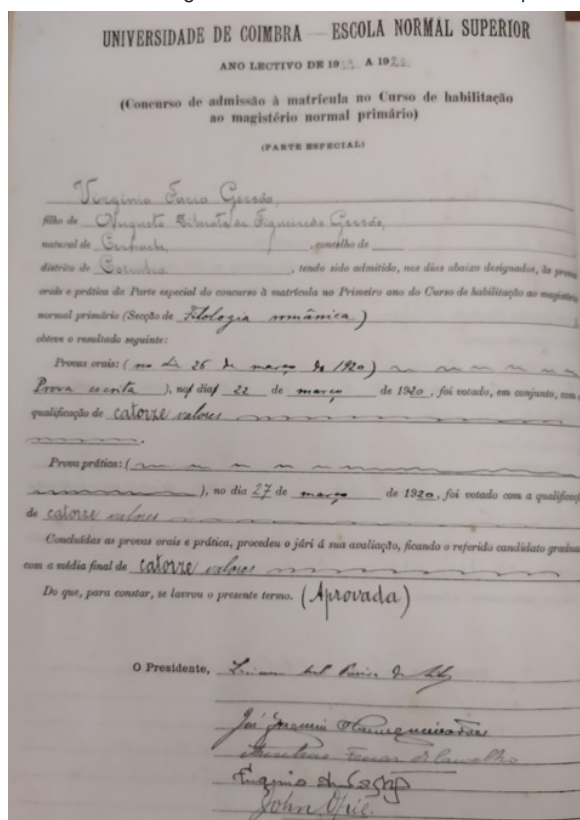 UNIVERSIDADE DE COIMBRA — ESCOLA NORMAL SUPERIOR
ANO LECTIVO DE 1919 A 1920
(Concurso de admissão à matrícula no Curso de habilitação
ao magistério normal primário)
(PARTE ESPECIAL)
Virginia Faria Gersão,
filho de Augusto de Figueiredo Gersão,
natural de Cernache, , concelho de
distrito de Coimbra , tendo sido admitido, nos dias abaixo designados, às provas
orais e prática da Parte especial do concurso à matrícula no Primeiro ano do Curso de habilitação ao magistério
normal primário (Secção de Filologia românica)
obteve o resultado seguinte:
Provas orais: (no dia 26 de março de 1920)
Prova escrita ), no dia 22 de março de 1920, foi votado, em conjunto, com a
qualificação de catorze valores
Prova prática: (
), no dia 27 de março de 1920, foi votado com a qualificaç
de catorze valores
Concluídas as provas orais e prática, procedeu o júri á sua avaliação, ficando o referido candidato gradua
com a média final de catorze valores
Do que, para constar, se lavrou o presente termo. (Aprovada)
O Presidente,
Eugenio de Castro
John Opie.